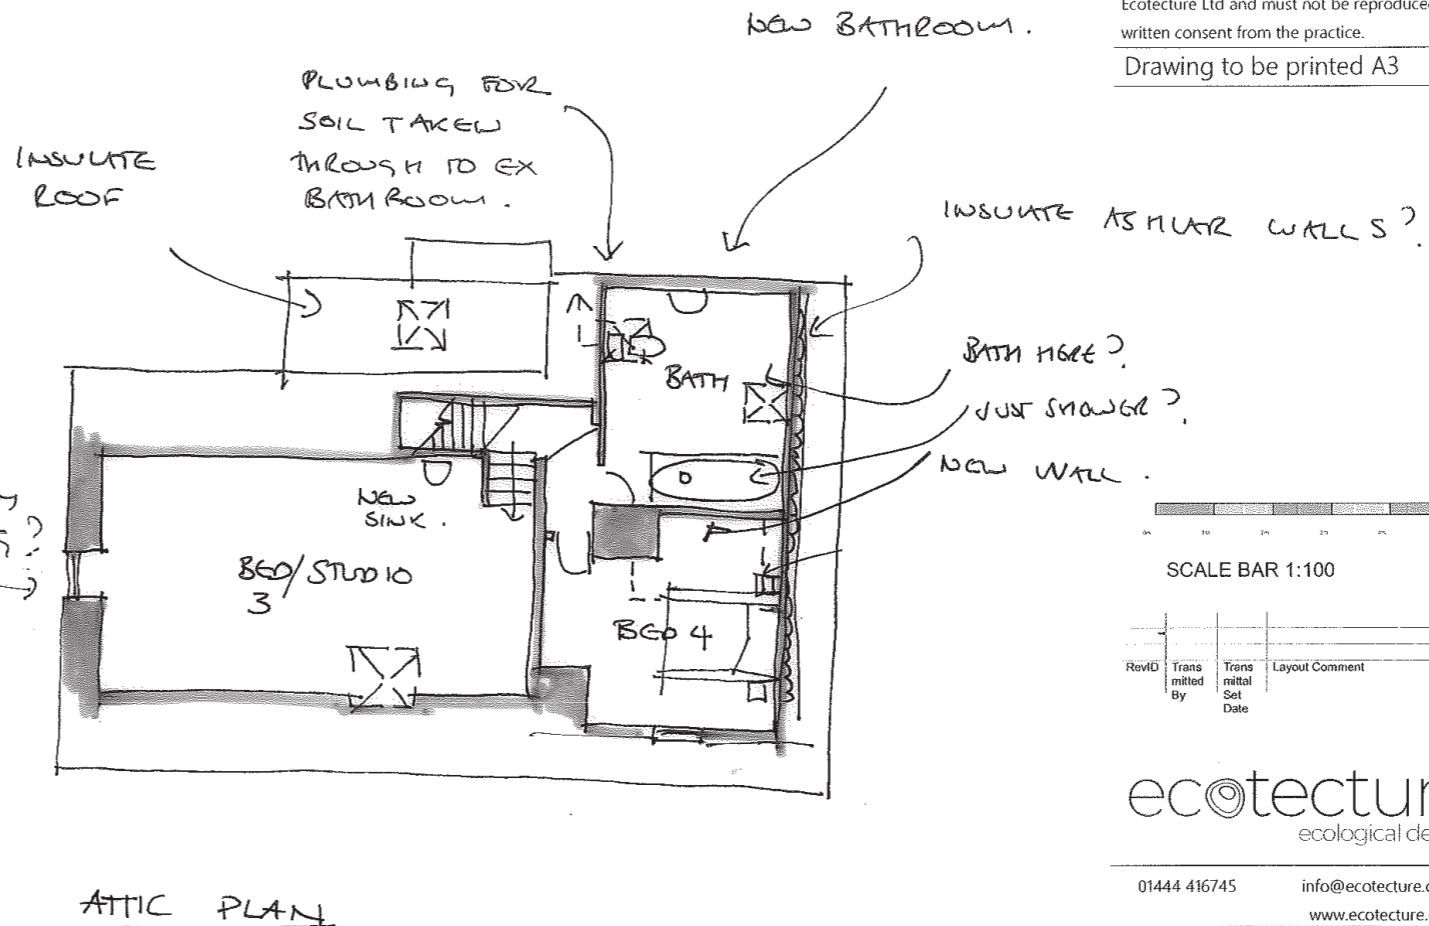 NEW BATHROOM.
Ecotecture Ltd and must not be reproduced
written consent from the practice.
Drawing to be printed A3
PLUMBING FOR
SOIL TAKEN
THROUGH TO EX
BATHROOM.
INSULATE
ROOF
INSULATE ASHLAR WALLS?
BATH HERE?
JUST SHOWER?
NEW WALL.
BATH
NEW
SINK.
BED/STUDIO
3
BED 4
SCALE BAR 1:100
RevID
Trans
mitted
By
Trans
mittal
Set
Date
Layout Comment
ecotectur
ecological de
01444 416745
info@ecotecture.c
www.ecotecture.
ATTIC PLAN